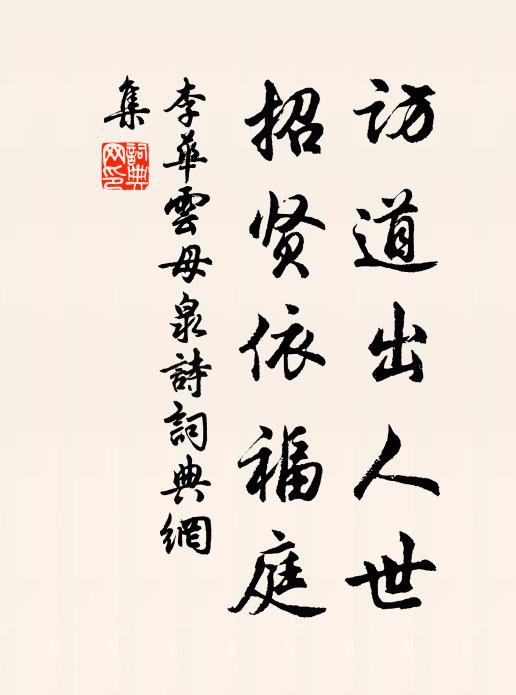 访道出人世
招贤依福庭
李華雲母泉詩詞典網
集
詞典網印